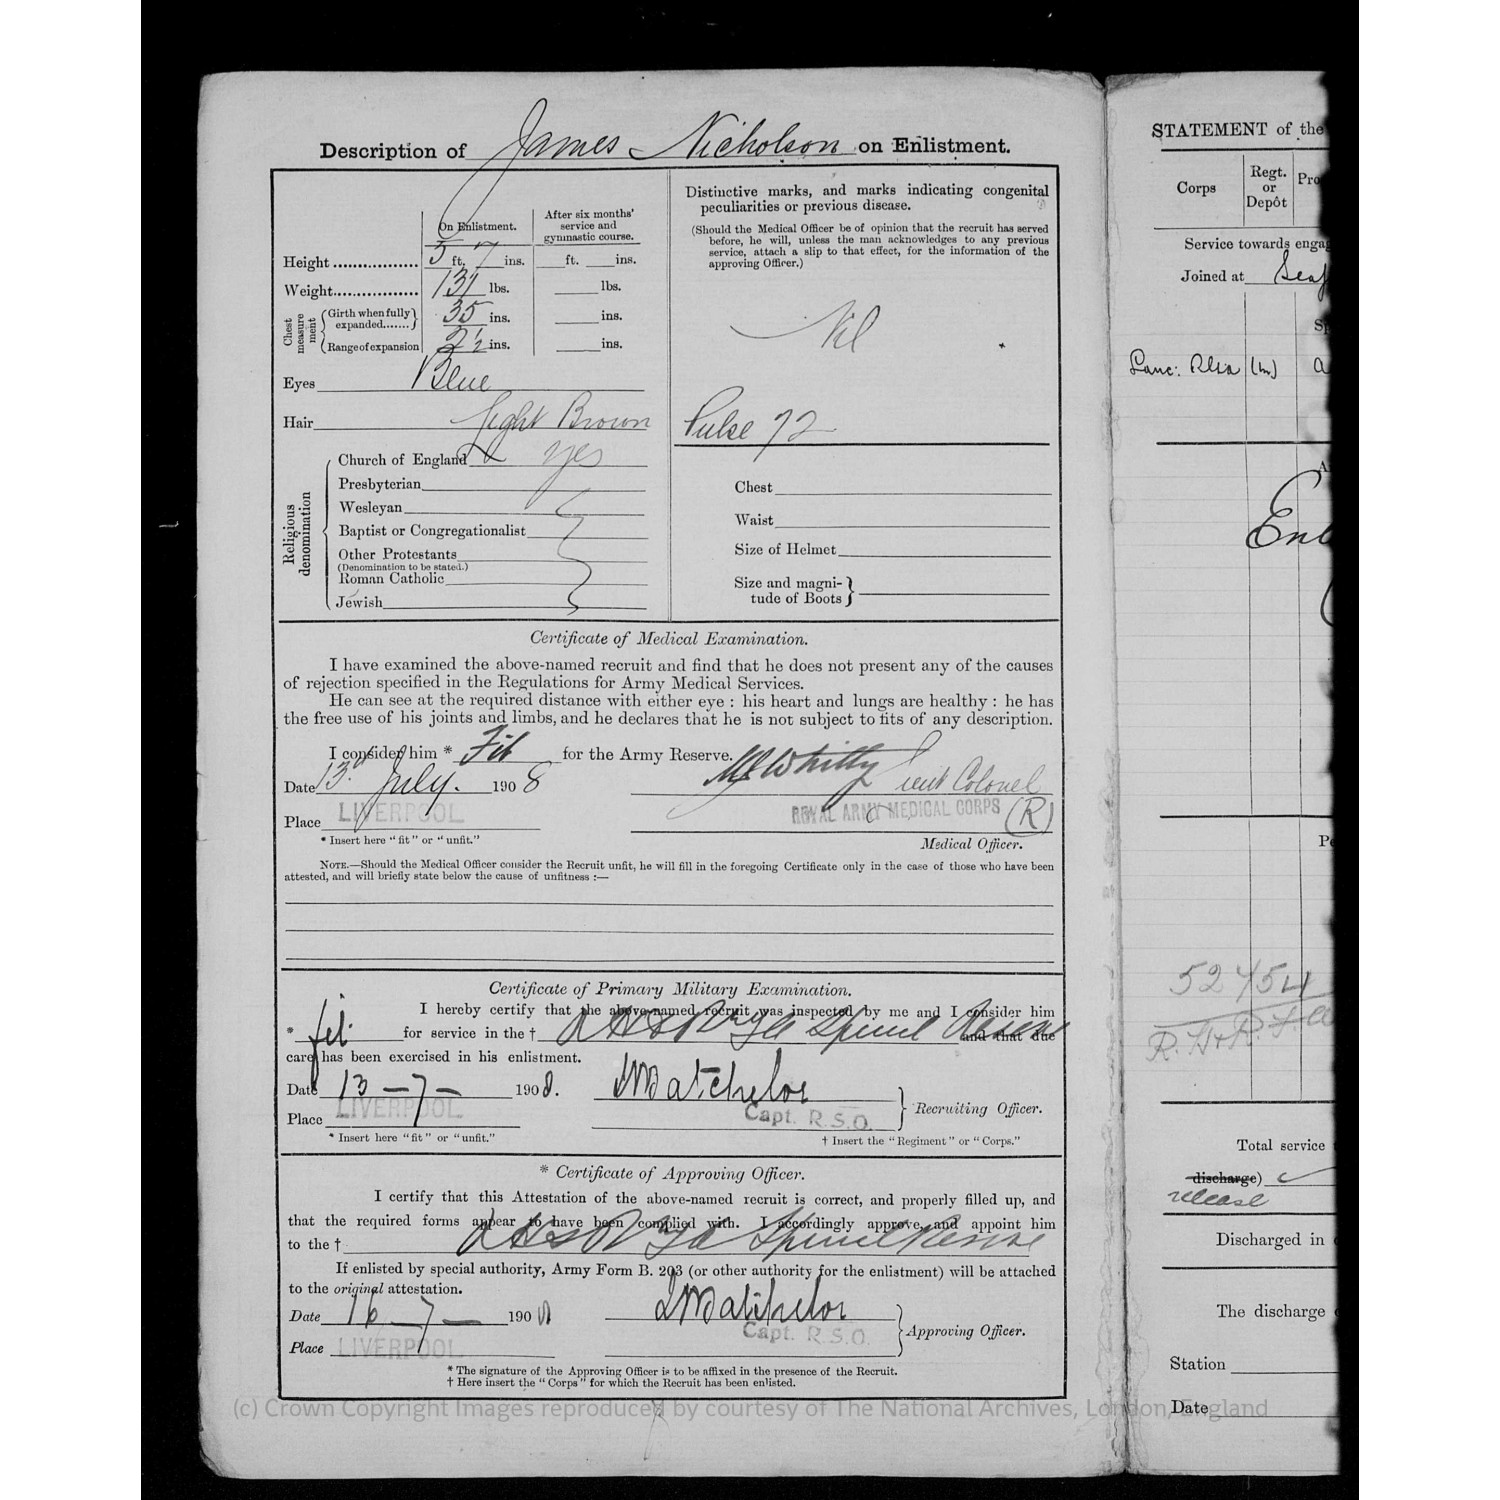 Description of James Nicholson on Enlistment.
On Enlistment.
After six months' service and gymnastic course.
Height 5 ft. 7 ins. ft. ins.
Weight 131 lbs. lbs.
Chest measurement
Girth when fully expanded 35 ins. ins.
Range of expansion 2½ ins. ins.
Eyes Blue
Hair Light Brown
Religious denomination
Church of England yes
Presbyterian
Wesleyan
Baptist or Congregationalist
Other Protestants
(Denomination to be stated.)
Roman Catholic
Jewish
Distinctive marks, and marks indicating congenital
peculiarities or previous disease.
(Should the Medical Officer be of opinion that the recruit has served
before, he will, unless the man acknowledges to any previous
service, attach a slip to that effect, for the information of the
approving Officer.)
Nil
Pulse 72
Chest
Waist
Size of Helmet
Size and magni-
tude of Boots
Certificate of Medical Examination.
I have examined the above-named recruit and find that he does not present any of the causes
of rejection specified in the Regulations for Army Medical Services.
He can see at the required distance with either eye : his heart and lungs are healthy : he has
the free use of his joints and limbs, and he declares that he is not subject to fits of any description.
I consider him * Fit for the Army Reserve.
Date 13 July. 1908 Whitty Lieut Colonel
Place LIVERPOOL ROYAL ARMY MEDICAL CORPS (R)
* Insert here "fit" or "unfit." Medical Officer.
NOTE.—Should the Medical Officer consider the Recruit unfit, he will fill in the foregoing Certificate only in the case of those who have been
attested, and will briefly state below the cause of unfitness :—
Certificate of Primary Military Examination.
I hereby certify that the above-named recruit was inspected by me and I consider him
* fit for service in the † Special Reserve and that due
care has been exercised in his enlistment.
Date 13 - 7 - 1908. Batchelor
Place LIVERPOOL Capt. R.S.O. Recruiting Officer.
* Insert here "fit" or "unfit." † Insert the "Regiment" or "Corps."
* Certificate of Approving Officer.
I certify that this Attestation of the above-named recruit is correct, and properly filled up, and
that the required forms appear to have been complied with. I accordingly approve, and appoint him
to the † Special Reserve
If enlisted by special authority, Army Form B. 203 (or other authority for the enlistment) will be attached
to the original attestation.
Date 16 - 7 - 1908 Batchelor
Place LIVERPOOL Capt. R.S.O. Approving Officer.
* The signature of the Approving Officer is to be affixed in the presence of the Recruit.
† Here insert the "Corps" for which the Recruit has been enlisted.
STATEMENT of the
Corps
Regt. or Depôt
Pro
Service towards engag
Joined at Seaf
Lanc:
Enl
52454
Total service
discharge)
release
Discharged in
The discharge
Station
Date
(c) Crown Copyright Images reproduced by courtesy of The National Archives, London, England